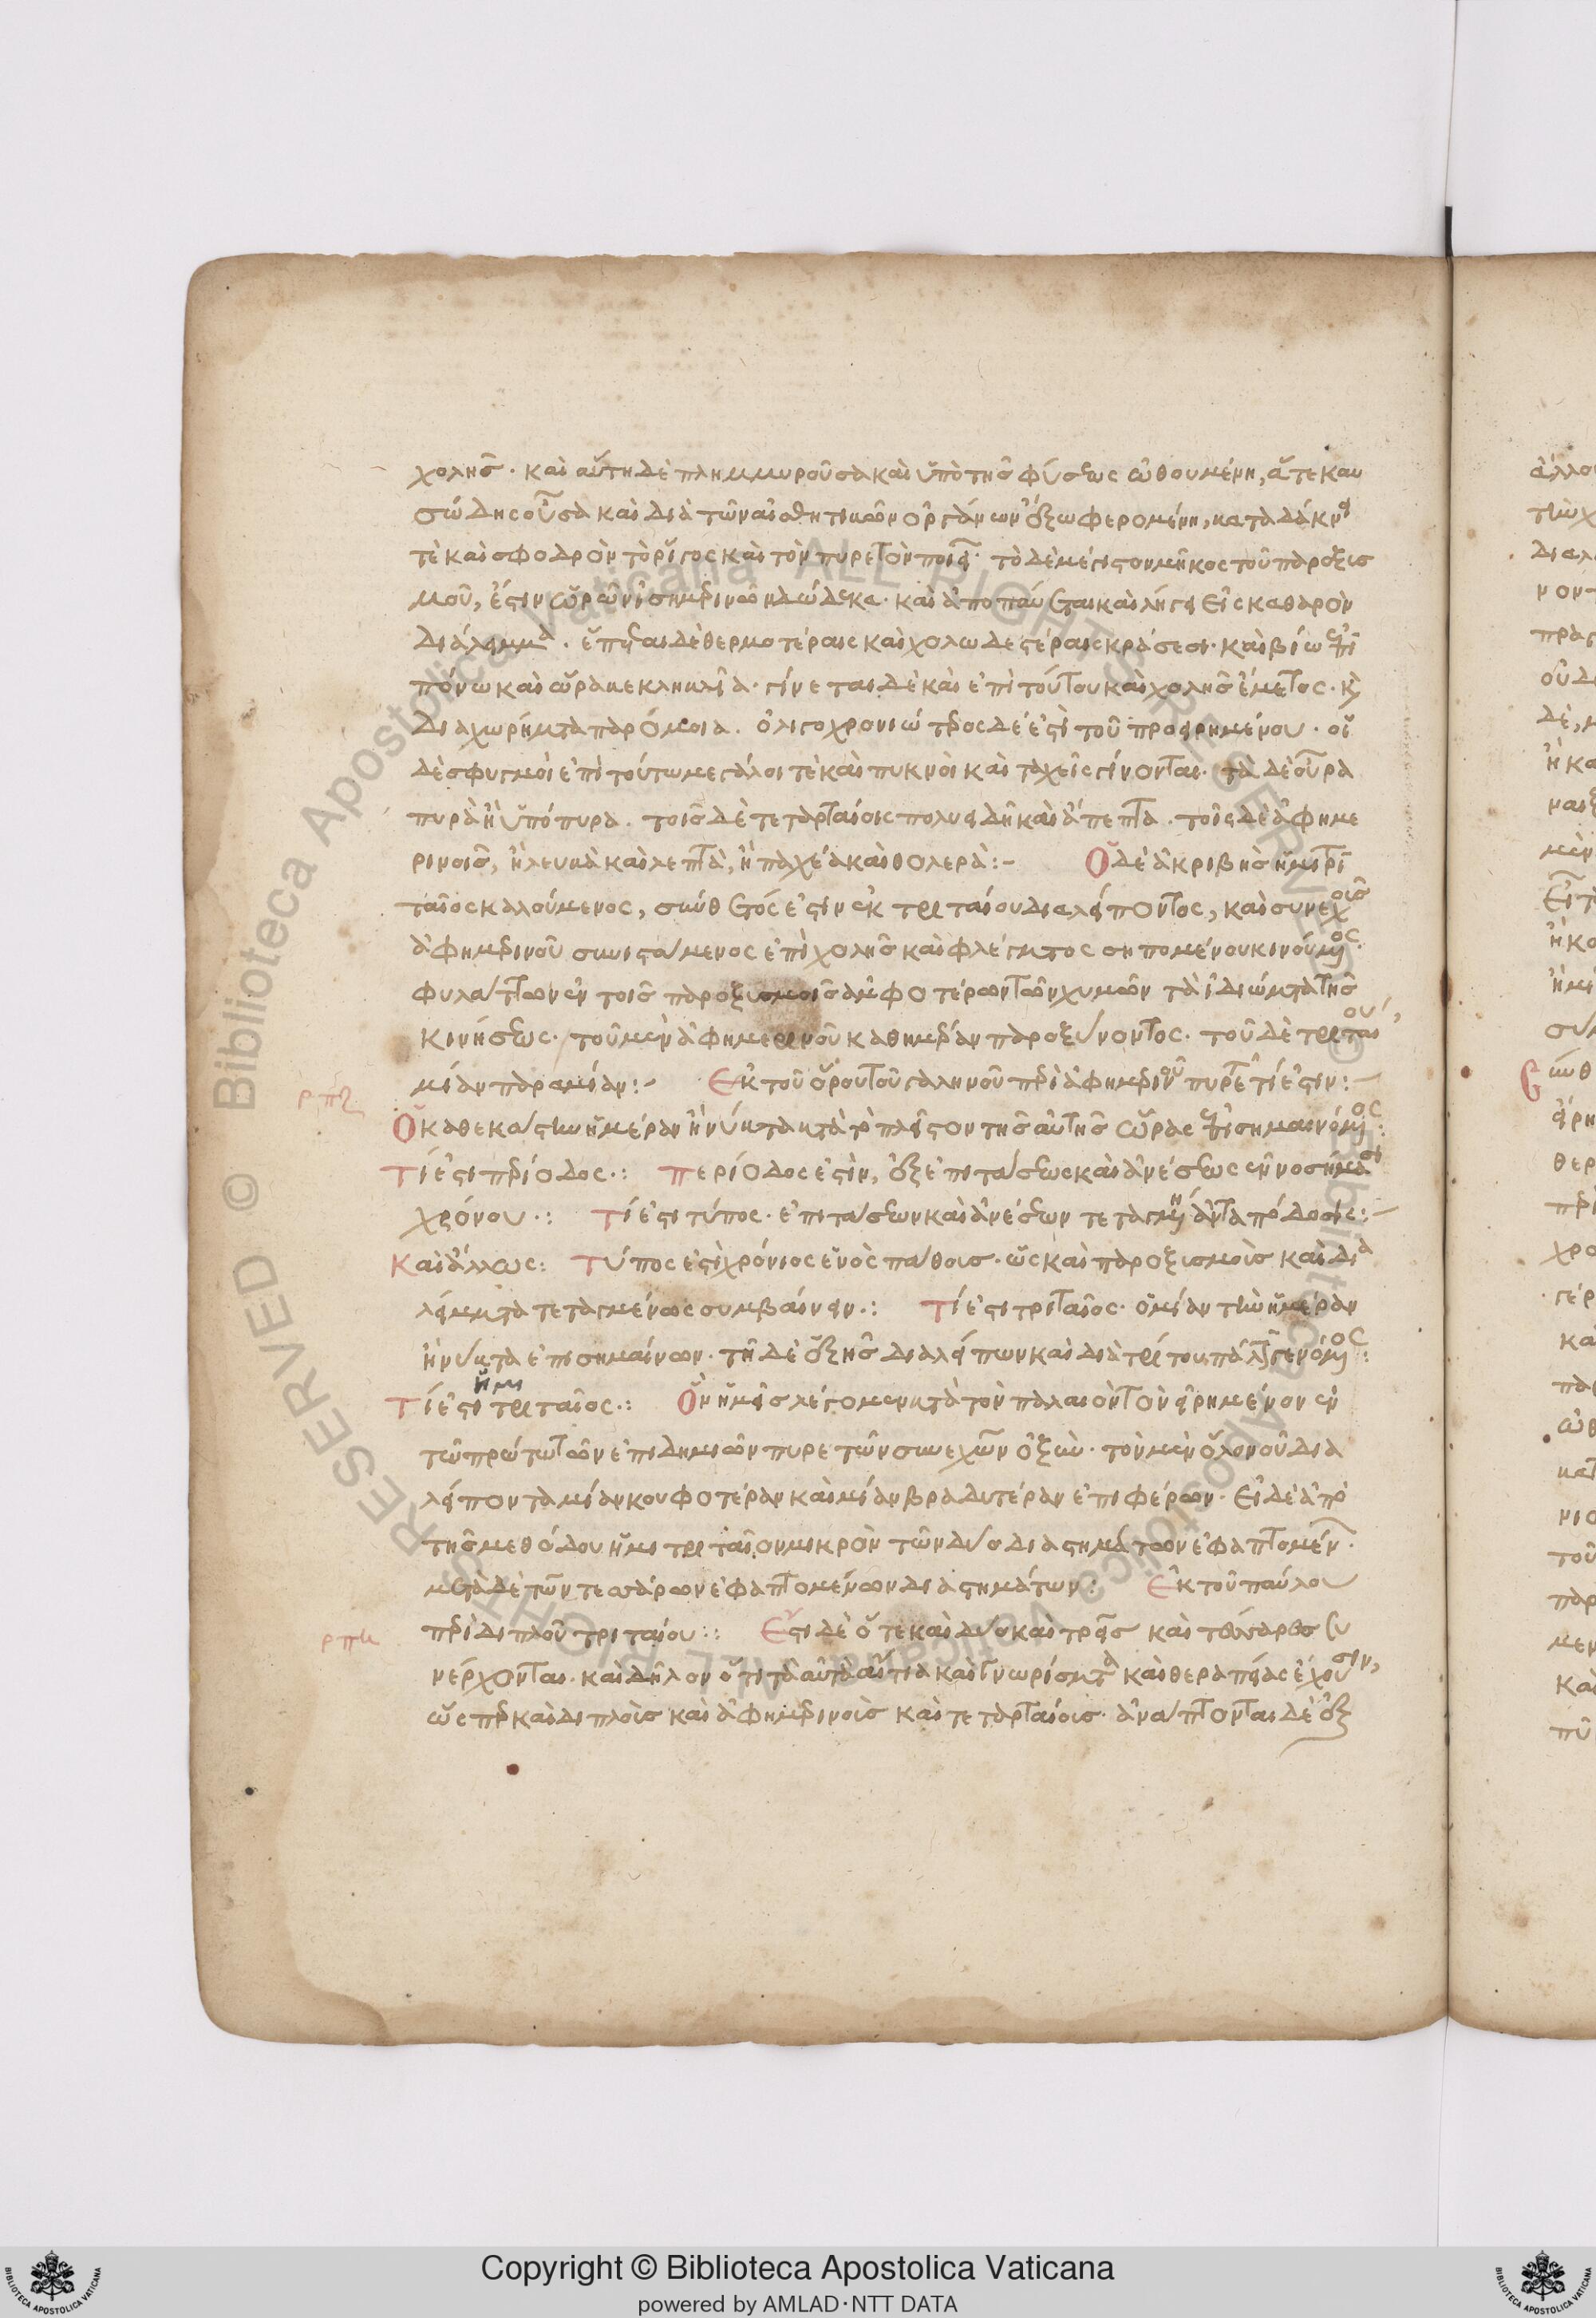 χολῆς · καὶ αὕτη δὲ πλημμυροῦσα καὶ ὑπὸ τῆς φύσεως ὠθουμένη, ἅτε καυ
σώδης οὖσα καὶ διὰ τῶν αἰσθητικῶν ὀργάνων ἔξω φερομένη, κατὰ δάκνει
τὲ καὶ σφοδρὸν τὸ ῥῖγος καὶ τὸν πυρετὸν ποιεῖ · τὸ δὲ μέγιστον μῆκος τοῦ παροξισ
μοῦ, ἐστὶν ὡρῶν ἰσημερινῶν δώδεκα · καὶ ἀποπαύεται καὶ λήγει εἰς καθαρὸν
διάλειμμα · ἔπεται δὲ θερμοτέραις καὶ χολωδεστέραις κράσεσι · καὶ βίω ἐπι
πόνω καὶ ὥρα καὶ ἡλικία · γίνεται δὲ καὶ ἐπὶ τούτου καὶ χολῆς ἔμετος · καὶ
διαχωρήματα παρόμοια · ὀλιγοχρονιώτερος δέ ἐστὶ τοῦ προειρημένου · οἱ
δὲ σφυγμοὶ ἐπὶ τούτω μεγάλοι τὲ καὶ πυκνοὶ καὶ ταχεῖς γίνονται · τὰ δὲ οὖρα
πυρὰ ἢ ὑπόπυρα · τοῖς δὲ τεταρταίοις πολυειδῆ καὶ ἄπεπτα · τοῖς δὲ ἀφημε
ρινοῖς, ἢ λευκὰ καὶ λεπτὰ, ἢ παχέα καὶ θολερὰ :- Ὁ δὲ ἀκριβὴς ἡμιτρι
ταῖος καλούμενος, σύνθετός ἐστιν ἐκ τριταίου διαλείποντος, καὶ συνεχοῦς
ἀφημερινοῦ συνιστάμενος ἐπὶ χολῆς καὶ φλέγματος σηπομένου κινούμενος ·
φυλάττων ἐν τοῖς παροξυσμοῖς ἀμφοτέρων τῶν χυμῶν τὰ ἰδιώματα τῆς
κινήσεως · τοῦ μὲν ἀφημερινοῦ καθημέραν παροξύνοντος · τοῦ δὲ τριταίου,
μίαν παρα μίαν :- Ἐκ τοῦ ὅρου τοῦ γαληνοῦ περὶ ἀφημερινοῦ πυρετοῦ τί ἐστιν :-
ρπζ
Ὁ καθεκάστην ἡμέραν ἢ νύκτα κατὰ τὸ πλεῖστον τῆς αὐτῆς ὥρας ἐπισημαινόμενος :
Τί ἐστι περίοδος ·: Περίοδος ἐστὶν, ἐξ ἐπιτάσεως καὶ ἀνέσεως ἐν νοσήμασι
χρόνου ·: Τί ἐστι τύπος · ἐπιτάσεων καὶ ἀνέσεων τεταγμένη ἀνταπόδοσις :-
Καὶ ἄλλως : Τύπος ἐστὶ χρόνιος ἑνὸς πάθους · ὡς καὶ παροξισμοῖς καὶ δια
λείμματα τεταγμένως συμβαίνειν ·: Τί ἐστι τριταῖος · ὁ μίαν τὴν ἡμέραν
ἢ νύκτα ἐπισημαίνων · τῇ δὲ ἑξῆς διαλείπων καὶ διὰ τρίτου πάλιν γενόμενος :
Τί ἐστι ἡμιτριταῖος ·: Ὃν ἡμεῖς λέγομεν κατὰ τὸν παλαιὸν τὸν εἰρημένον ἐν
τῷ πρώτω τῶν ἐπιδημιῶν πυρετῶν συνεχῶν ὀξὺν · τὸν μὲν ὅλον οὐ δια
λείποντα μίαν κουφοτέραν καὶ μίαν βραδυτέραν ἐπιφέρων · Εἰ δὲ ἀπὸ
τῆς μεθόδου ἡμιτριταῖον μικρὸν τῶν δύο διαστημάτων ἐφαπτόμενον ·
μετὰ δὲ τῶν τεσσάρων ἐφαπτομένων διαστημάτων : Ἐκ τοῦ παύλου
ρπη
περὶ διπλοῦ τριταίου ·: Ἔστι δὲ ὅτε καὶ δύο καὶ τρεῖς καὶ τέσσαρες συ
νέρχονται · καὶ δῆλον ὅτι τὰ αὐτὰ αἴτια καὶ γνωρίσματα καὶ θεραπείας ἔχουσιν,
ὥσπερ καὶ διπλοῖς καὶ ἀφημερινοῖς καὶ τεταρταίοις · ἀνάπτονται δὲ ἐξ
Copyright © Biblioteca Apostolica Vaticana
powered by AMLAD·NTT DATA